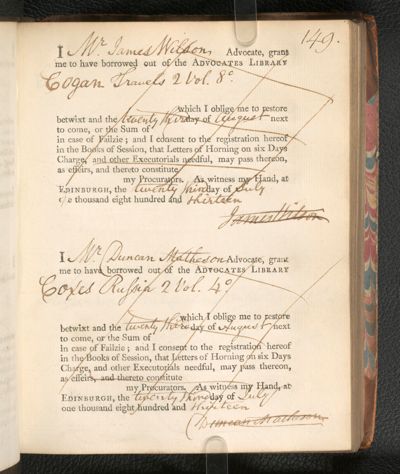 149.
I Mr. James Wilson, Advocate, grant
me to have borrowed out of the ADVOCATES LIBRARY
Cogan Travels 2 Vol. 8o
which I oblige me to restore
betwixt and the twenty third day of August next
to come, or the Sum of
in case of Failzie; and I consent to the registration hereof
in the Books of Session, that Letters of Horning on six Days
Charge, and other Executorials needful, may pass thereon,
as effeirs, and thereto constitute
my Procurators. As witness my Hand, at
EDINBURGH, the twenty third day of July
one thousand eight hundred and thirteen
James Wilson
I Mr. Duncan Matheson Advocate, grant
me to have borrowed out of the ADVOCATES LIBRARY
Coxes Russia 2 Vol. 4o
which I oblige me to restore
betwixt and the twenty third day of August next
to come, or the Sum of
in case of Failzie; and I consent to the registration hereof
in the Books of Session, that Letters of Horning on six Days
Charge, and other Executorials needful, may pass thereon,
as effeirs, and thereto constitute
my Procurators. As witness my Hand, at
EDINBURGH, the twenty third day of July
one thousand eight hundred and thirteen
Duncan Matheson